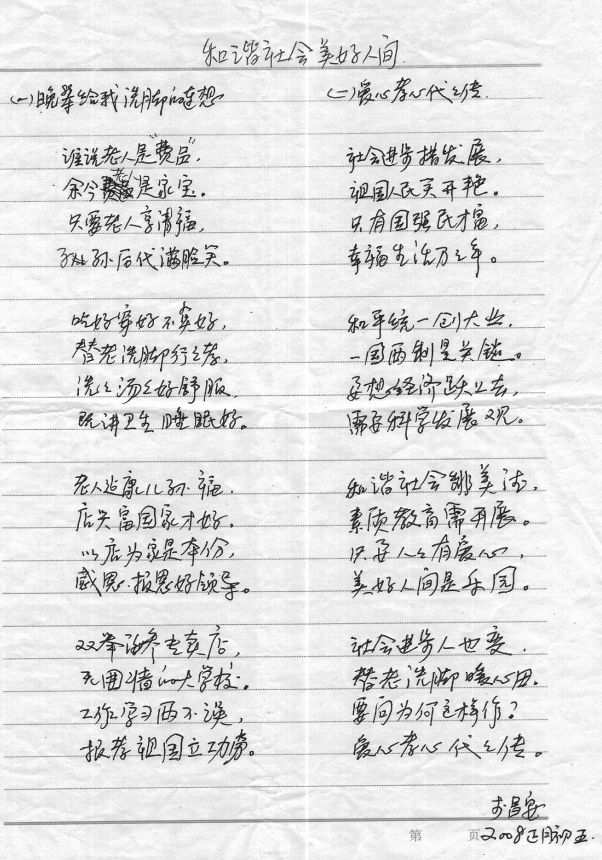 和谐社会美好人间
(一)晚辈给我洗脚的连想
谁说老人是"费品",
余今老人是家宝。
只要老人享清福,
子孙后代满脸笑。
吃好穿好不算好,
替老洗脚行之孝,
洗之汤之好舒服
既讲卫生睡眠好。
老人近康儿孙福.
店兴富国家才好.
以店为家是本份,
感恩.报恩好领导。
双举海参专卖店,
无围墙的大学校。
工作学习两不误,
报孝祖国立功劳。
(二)爱心孝心代之传.
社会进步措发展,
祖国人民笑开艳。
只有国强民才富,
幸福生活万之年。
和平统一创大业.
一国两制是关键。
要想经济跃上去,
需要科学发展观。
和谐社会
素质教育需开展。
只要人人有爱心,
美好人间是乐园。
社会进步人也变.
替老洗脚暖心田.
要问为何这样作?
爱心孝心代之传。
昌
第 页
2008正月初五.